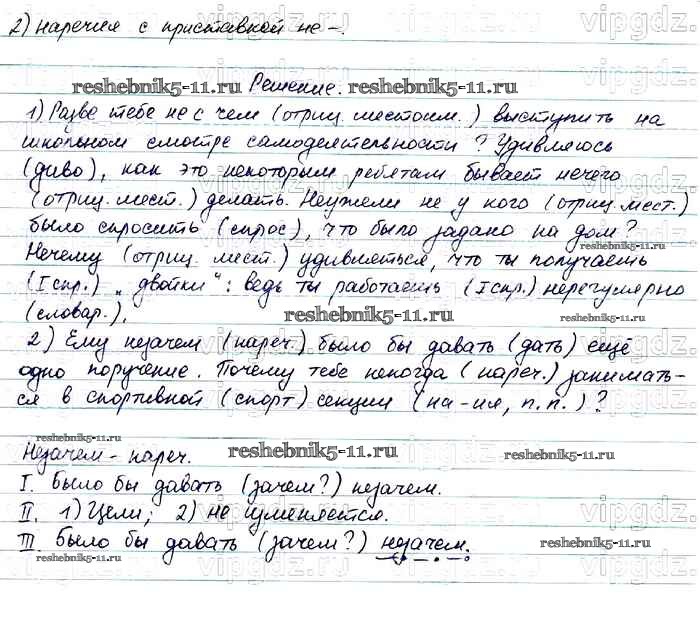 2) наречия с приставкой не-.
Решение.
1) Разве тебе не с чем (отриц. местоим.) выступить на
школьном смотре самодеятельности? Удивляюсь
(диво), как это некоторым ребятам бывает нечего
(отриц. мест.) делать. Неужели не у кого (отриц. мест.)
было спросить (спрос), что было задано на дом?
Нечему (отриц. мест.) удивляться, что ты получаешь
(I спр.) „двойки“: ведь ты работаешь (I спр.) нерегулярно
(словар.).
2) Ему незачем (нареч.) было бы давать (дать) ещё
одно поручение. Почему тебе некогда (нареч.) занимать-
ся в спортивной (спорт) секции (на -ия, п.п.)?
Незачем - нареч.
I. Было бы давать (зачем?) незачем.
II. 1) Цели; 2) не изменяется.
III. Было бы давать (зачем?) незачем.
reshebnik5-11.ru
vipgdz.ru